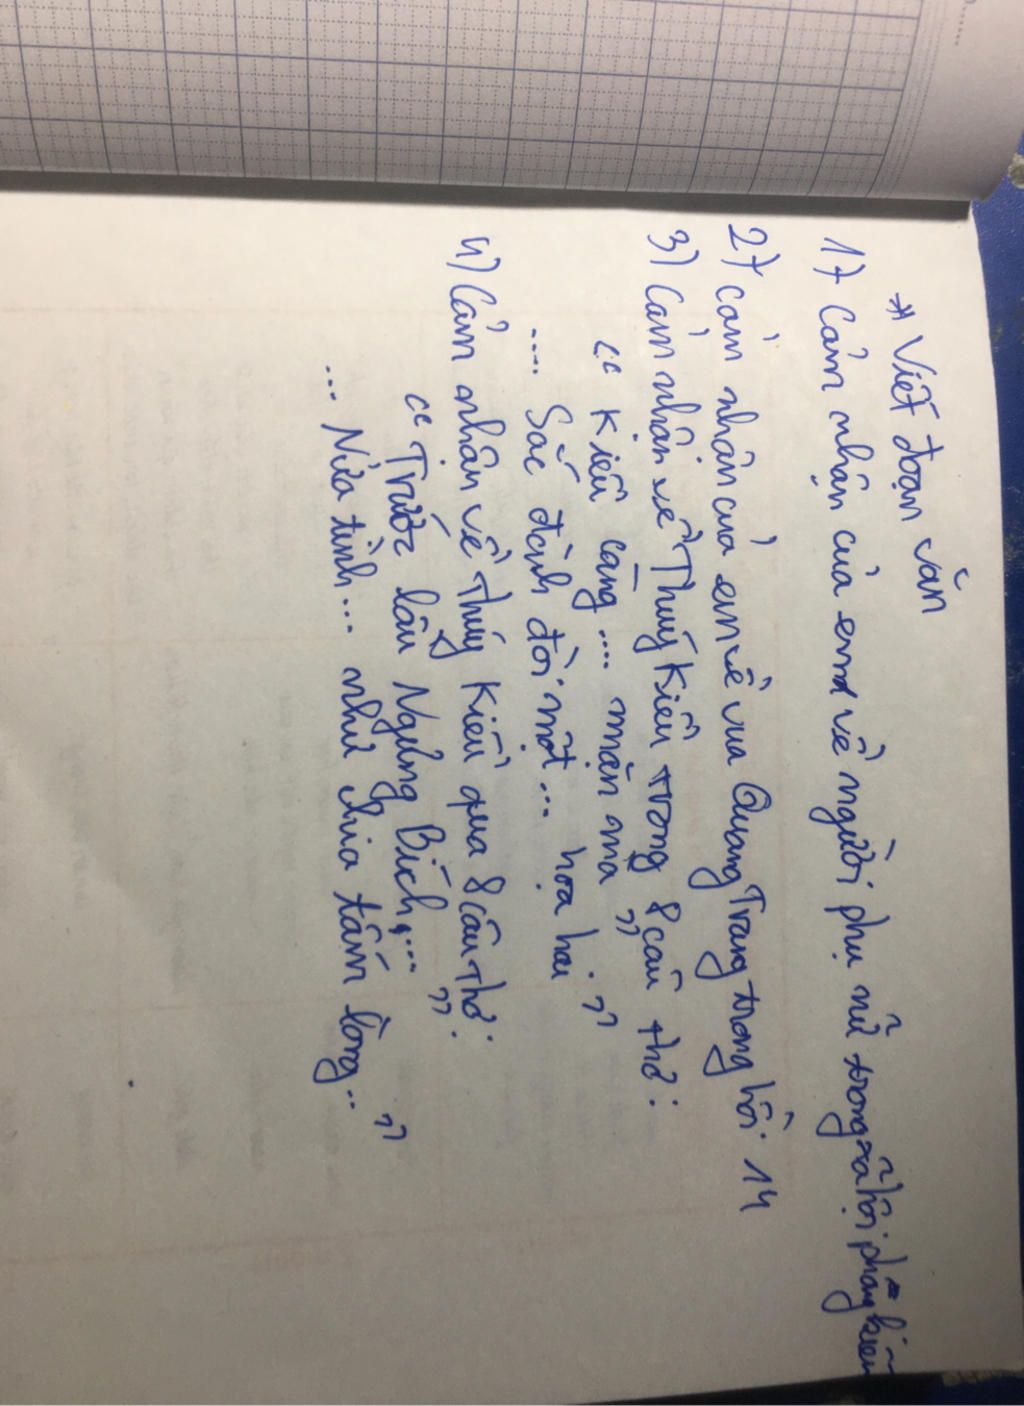 * Viết đoạn văn
1) Cảm nhận của em về người phụ nữ trong xã hội phong kiến
2) Cảm nhận của em về vua Quang Trung trong hồi 14
3) Cảm nhận về Thuý Kiều trong 8 câu thơ:
" Kiều càng .... mặn mà "
.... Sắc đành đòi một... họa hai "
4) Cảm nhận về Thúy Kiều qua 8 câu thơ:
" Trước lầu Ngưng Bích,... "
... Nửa tình... như chia tấm lòng.. "